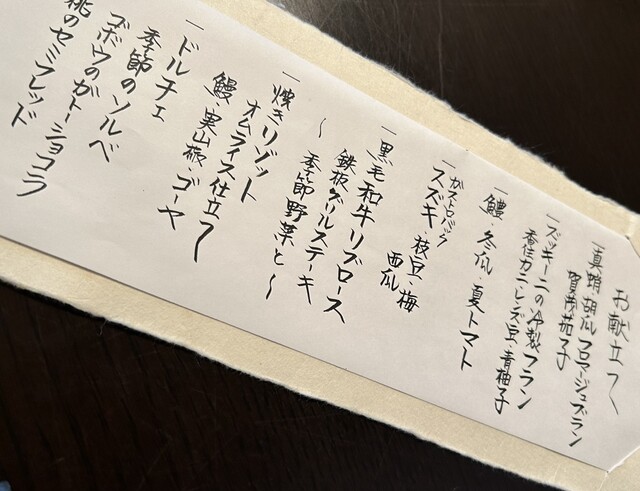 お献立て
一 真蛸 胡瓜 フロマージュブラン
賀茂茄子
一 ズッキーニの冷製フラン
香住カニ・レンズ豆・青柚子
一 鱧・冬瓜・夏トマト
一 ガストロバック
スズキ・枝豆・梅
西瓜
一 黒毛和牛リブロース
鉄板グリルステーキ
〜季節野菜と〜
一 焼きリゾット
オムライス仕立て
鰻・実山椒・ゴーヤ
一 ドルチェ
季節のソルベ
ゴボウのガトーショコラ
桃のセミフレッド